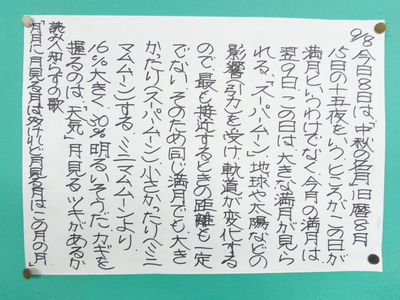 9/8 今日8日は、「中秋の名月」旧暦8月
15日の十五夜をいう。ところが、この日が
満月というわけでなく、今月の満月は
翌9日、この日は、大きな満月が見ら
れる、「スーパームーン」、地球や太陽などの
影響(引力)を受け軌道が変化する
ので、最も接近するときの距離も一定
でない。そのため同じ満月でも、大き
かったり(スーパームーン)小さかったり(ミニ
マムムーン)する、ミニマムムーンより、
16%大きく、30%明るいそうだ。カギを
握るのは、「天気」月見るツキがあるか
読人知らずの歌
「月月に月見る月は多けれど月見る月はこの月の月」